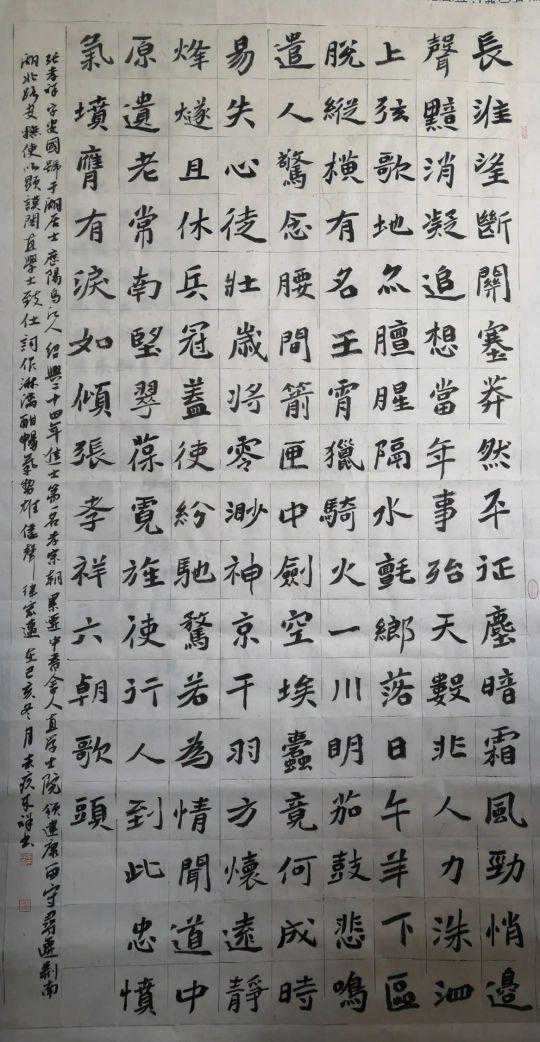 長淮望斷關塞莽然平征塵暗霜風勁悄邊
聲黯消凝追想當年事殆天數非人力洙泗
上弦歌地亦膻腥隔水氈鄉落日午羊下區
脫縱橫有名王宵獵騎火一川明茄鼓悲鳴
遣人驚念腰間箭匣中劍空埃蠹竟何成時
易失心徒壯歲將零渺神京干羽方懷遠靜
烽燧且休兵冠蓋使紛馳騖若為情聞道中
原遺老常南望翠葆霓旌使行人到此忠憤
氣墳膺有淚如傾張孝祥六朝歌頭
張孝祥字安國號于湖居士歷陽烏江人紹興二十四年進士第一名孝宗朝累遷中書舍人直學士院領建康留守尋遷荊南
湖北路安撫使以顯謨閣直學士致仕詞作淋漓酣暢氣勢雄健聲律宏邁己亥冬月